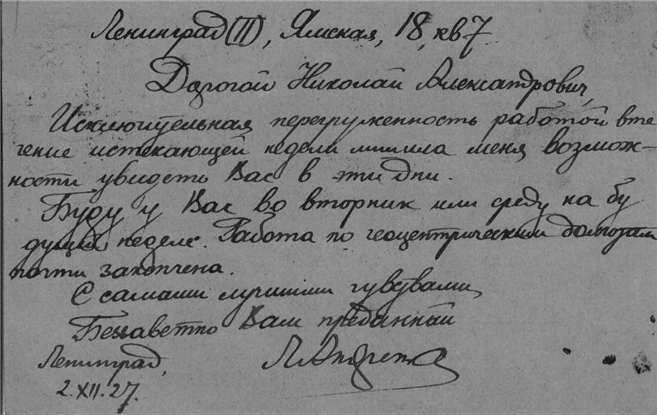 Ленинград (II), Ямская, 18, кв 7
Дорогой Николай Александрович,
Исключительная перегруженность работой в те
чение истекающей недели лишила меня возмож-
ности увидеть Вас в эти дни.
Буду у Вас во вторник или среду на бу
дущей неделе. Работа по геоцентрическим долготам
почти закончена.
С самыми лучшими чувствами
Беззаветно Вам преданный
Ленинград,
2.XII.27.